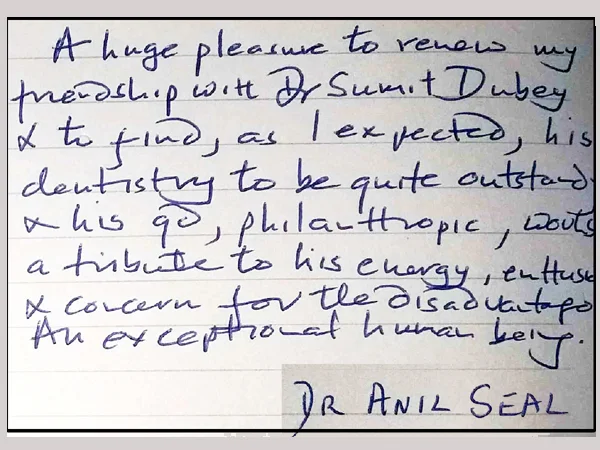 A huge pleasure to renew my
friendship with Dr Sumit Dubey
& to find, as I expected, his
dentistry to be quite outstand
& his good, philanthropic, works
a tribute to his energy, enthuse
& concern for the disadvantage
An exceptional human being.
DR ANIL SEAL